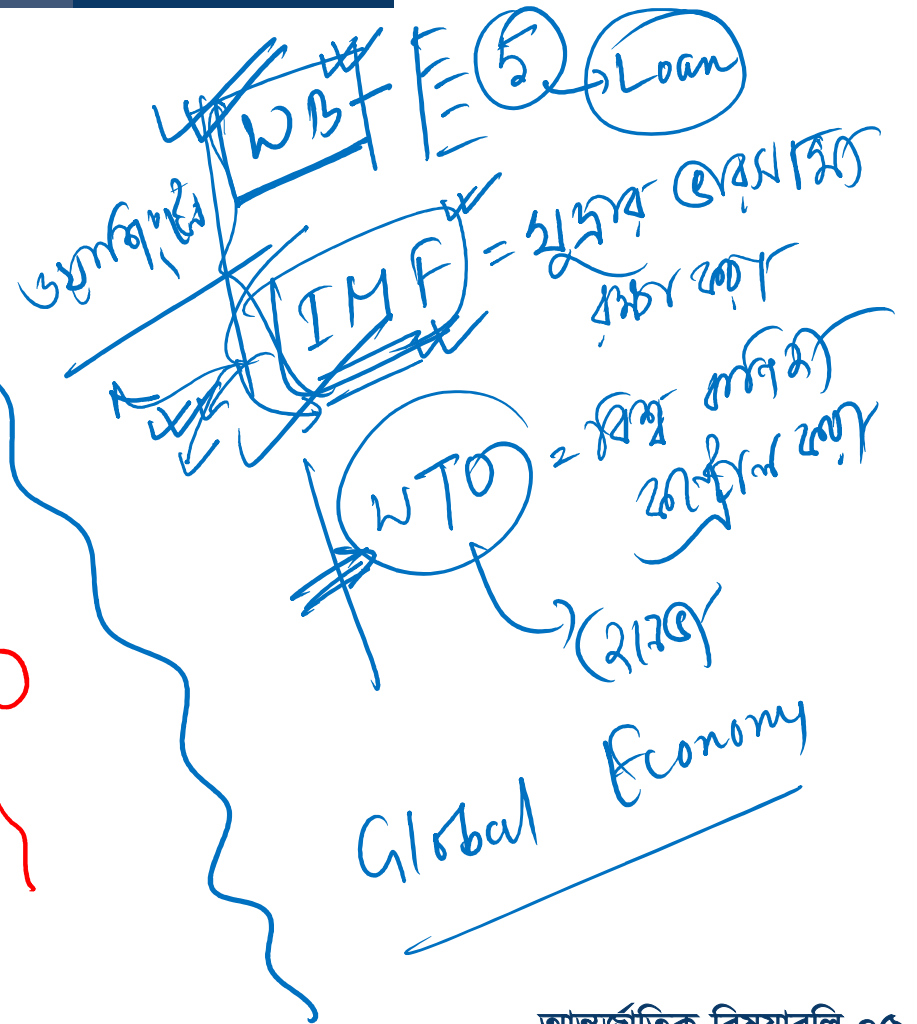 WB 5 → Loan
ওয়াশিংটন
IMF = মুদ্রার ভারসাম্য
রক্ষা করা
WTO = বিশ্ব বানিজ্য
কন্ট্রোল করা
জেনেভা
Global Economy
আন্তর্জাতিক বিষয়াবলি ০৫